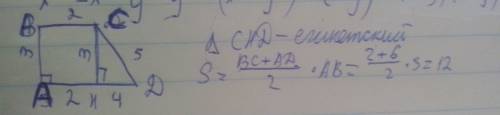 B 2 C
3 3 5
A 2 H 4 D
Δ CHD - египетский
S = (BC + AD)/2 · AB = (2+6)/2 · 3 = 12